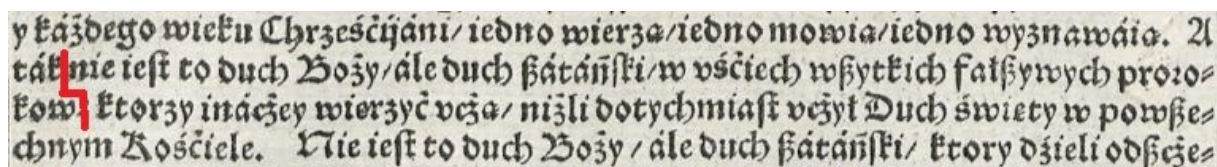 y káżdego wieku Chrześćijáni/ iedno wierza/ iedno mowia/ iedno wyznawáia. A
ták nie iest to duch Boży/ ále duch ßátáńſki/ w vśćiech wßytkich fałßywych proro⸗
kow: ktorzy ináczey wierzyć vcża/ niżli dotychmiaſt vcżył Duch święty w powße⸗
chnym Kośćiele. Nie ieſt to duch Boży/ ále duch ßátáńſki/ ktory dźieli odßcże⸗